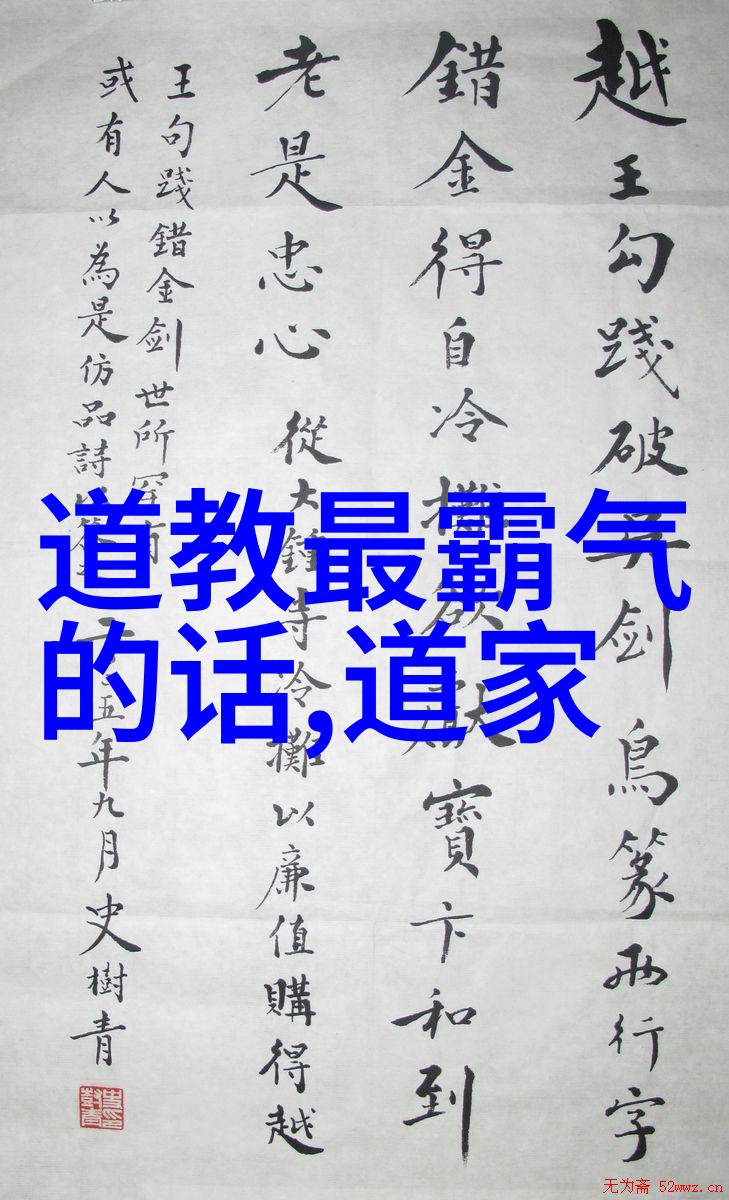 越王勾踐破剑鳥篆两行字
錯金得自冷攤欲獻寶卞和到
老是忠心 從大鐘寺冷攤以廉值購得越
王句踐錯金剑世所罕有
或有人以為是仿品詩以五年九月史樹青
道教最霸气
的话,道家
无为斋 52wwz.cn